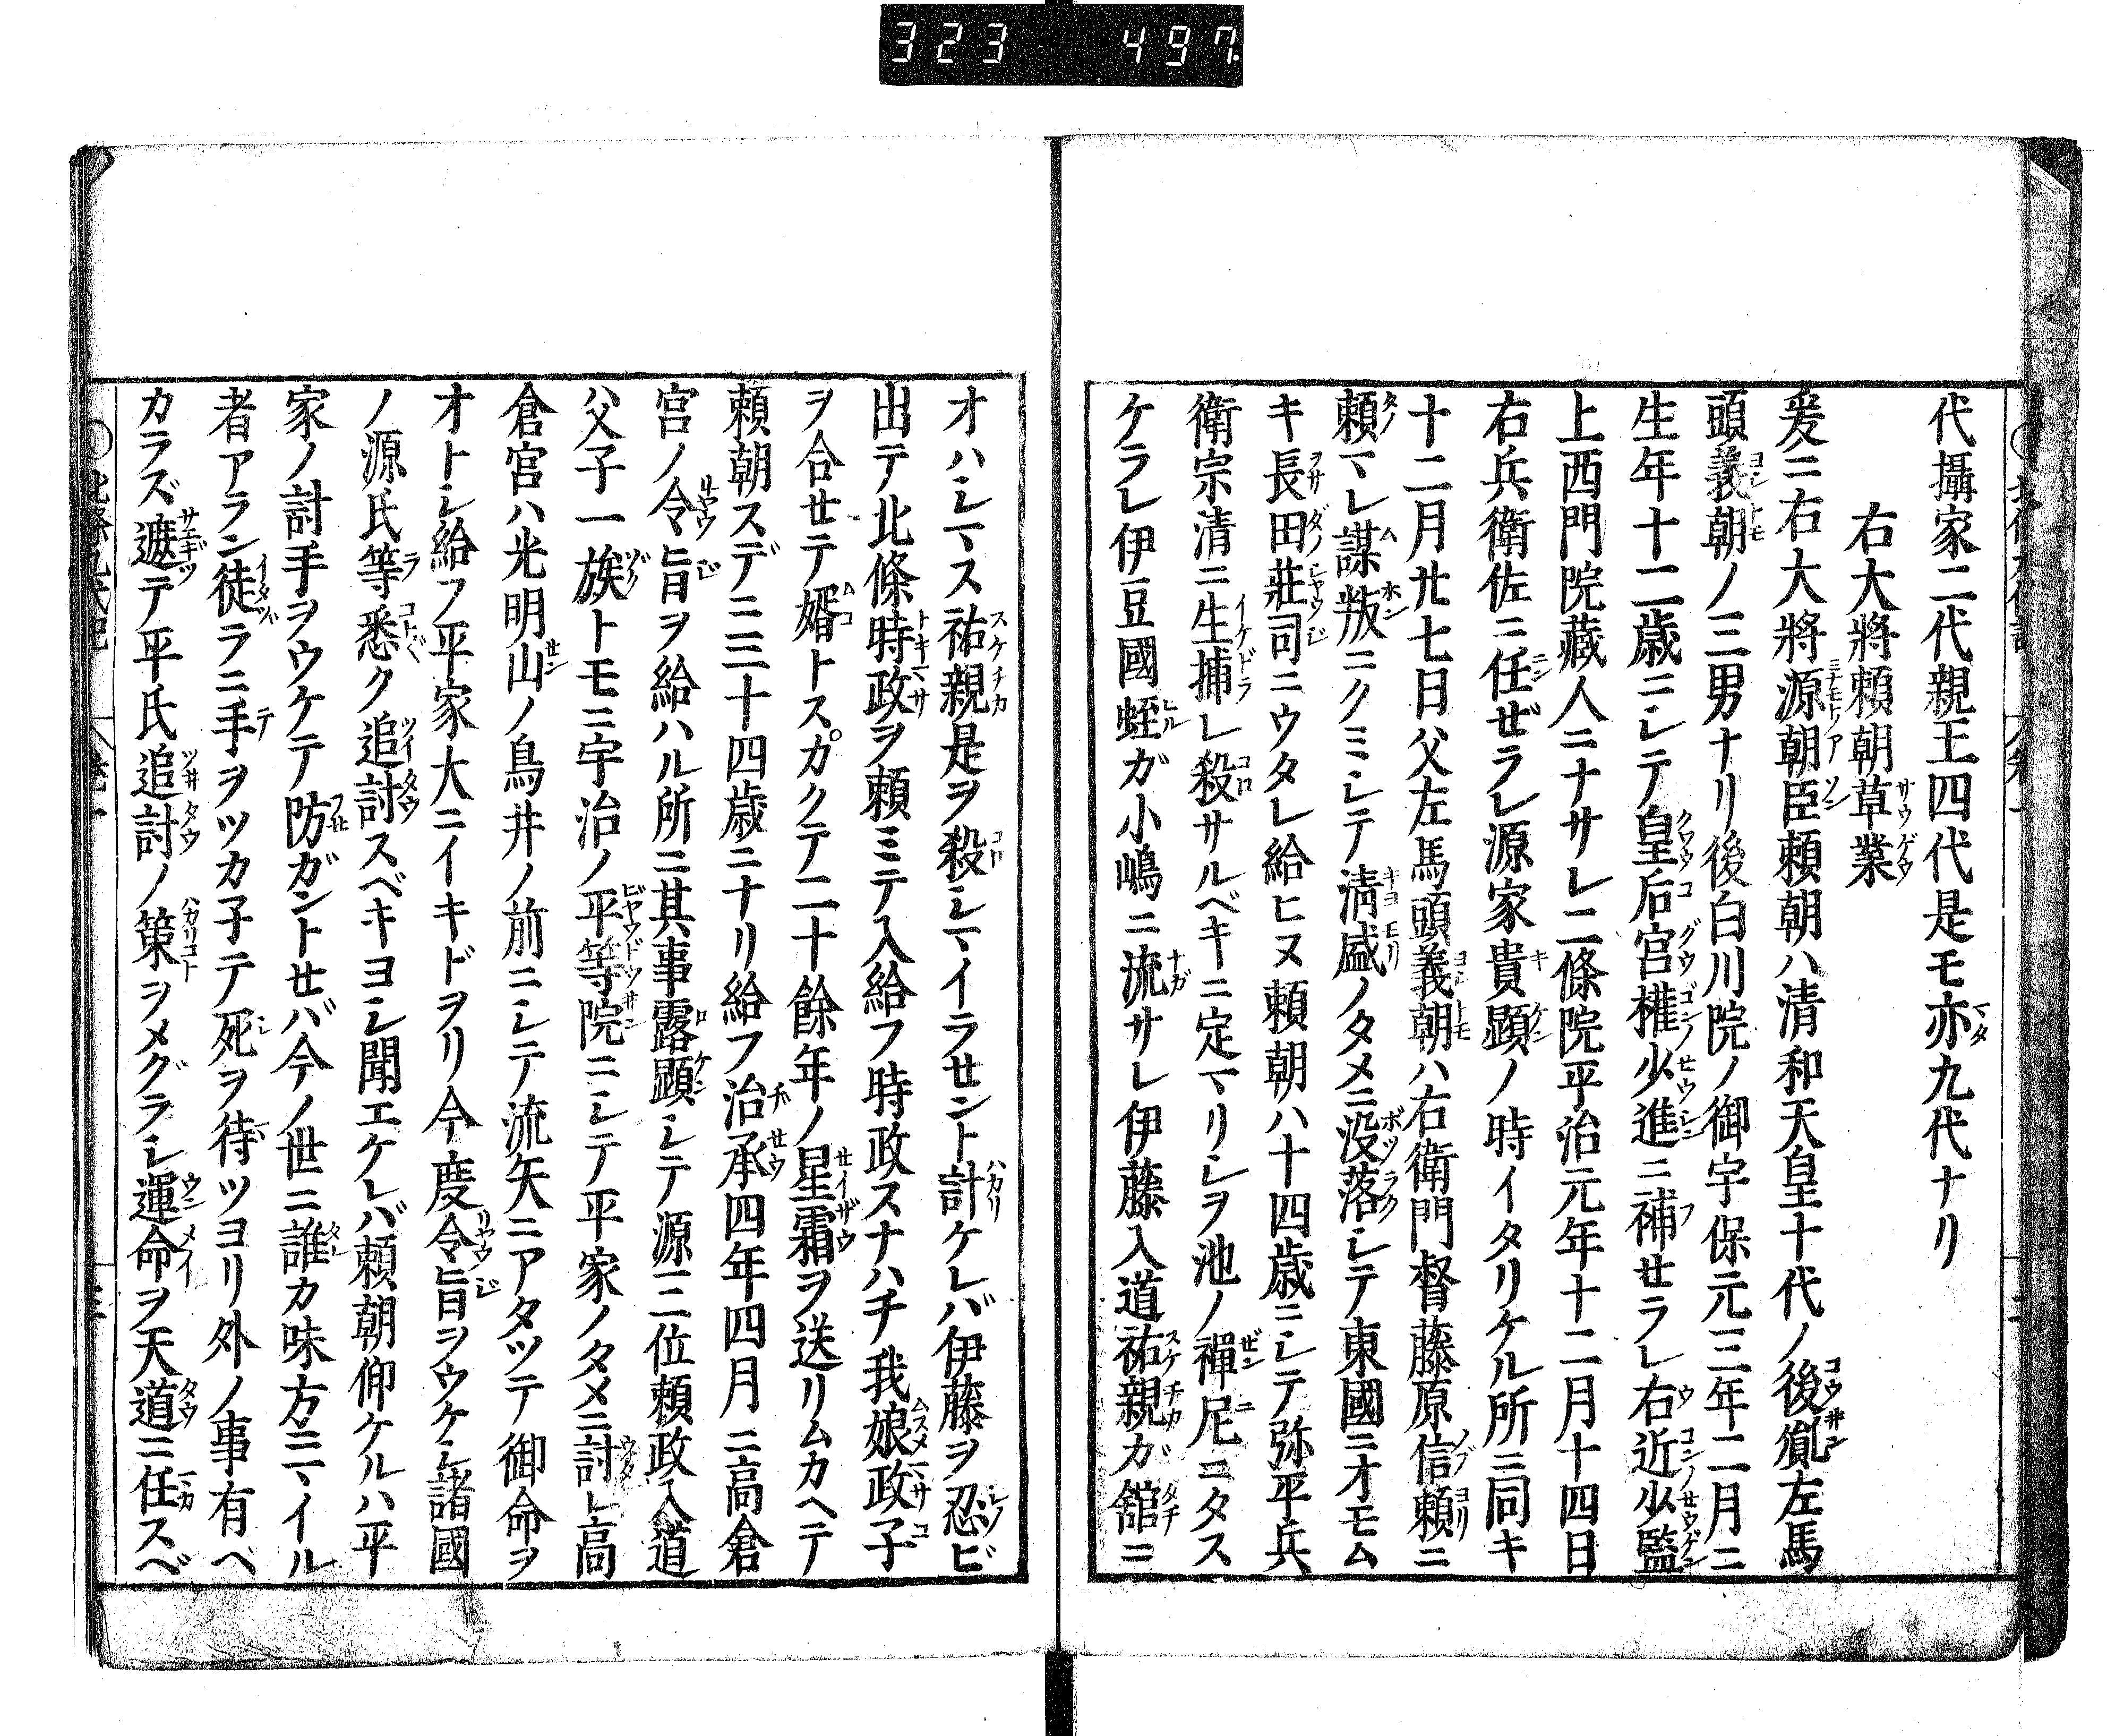 323 497
代攝家二代親王四代是モ亦九代ナリ
右大將賴朝草業
爰ニ右大將源朝臣賴朝ハ清和天皇十代ノ後胤左馬
頭義朝ノ三男ナリ後白川院ノ御宇保元三年二月ニ
生年十二歳ニシテ皇后宮權少進ニ補セラレ右近少監
上西門院藏人ニナサレ二條院平治元年十二月十四日
右兵衛佐ニ任ぜラレ源家貴顕ノ時イタリケル所ニ同キ
十二月廿七日父左馬頭義朝ハ右衛門督藤原信賴ニ
賴マレ謀叛ニクミシテ淸盛ノタメニ没落シテ東國ニオモム
キ長田莊司ニウタレ給ヒヌ賴朝ハ十四歳ニシテ弥平兵
衛宗清ニ生捕レ殺サルベキニ定マリシヲ池ノ禪尼ニタス
ケラレ伊豆國蛭ガ小嶋ニ流サレ伊藤入道祐親ガ舘ニ
オハシマス祐親是ヲ殺シマイラセント計ケレバ伊藤ヲ忍ビ
出テ北條時政ヲ賴ミテ入給フ時政スナハチ我娘政子
ヲ合セテ婿トスカクテ二十餘年ノ星霜ヲ送リムカヘテ
賴朝スデニ三十四歳ニナリ給フ治承四年四月ニ高倉
宮ノ令旨ヲ給ハル所ニ其事露顕シテ源三位賴政入道
父子一族トモニ宇治ノ平等院ニシテ平家ノタメニ討レ高
倉宮ハ光明山ノ鳥井ノ前ニシテ流矢ニアタツテ御命ヲ
オトシ給フ平家大ニイキドヲリ今度令旨ヲウケシ諸國
ノ源氏等悉ク追討スベキヨシ聞エケレバ賴朝仰ケルハ平
家ノ討手ヲウケテ防ガントセバ今ノ世ニ誰カ味方ニマイル
者アラン徒ラニ手ヲツカ子テ死ヲ待ツヨリ外ノ事有ベ
カラズ遮テ平氏追討ノ策ヲメグラシ運命ヲ天道ニ任スベ